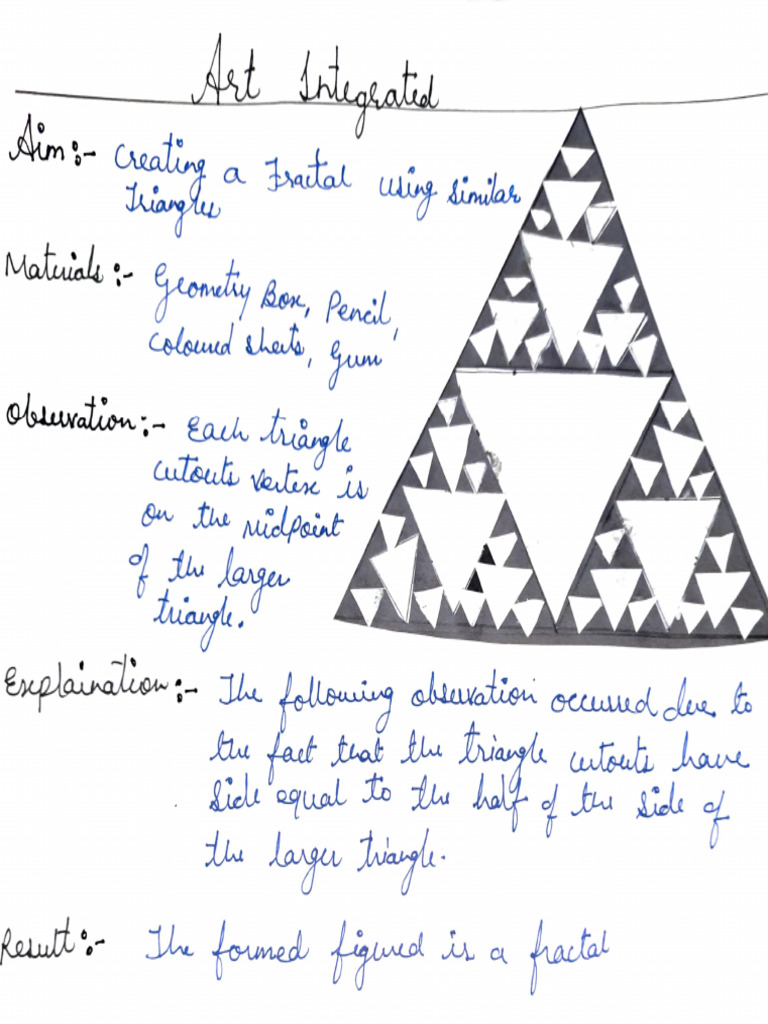 Art Integrated
Aim:- Creating a Fractal using similar
Triangles
Materials:- Geometry Box, Pencil,
Coloured sheets, Gum
Observation:- Each triangle
cutouts vertex is
on the midpoint
of the larger
triangle.
Explaination:- The following observation occurred due to
the fact that the triangle cutouts have
side equal to the half of the side of
the larger triangle.
Result:- The formed figured is a fractal